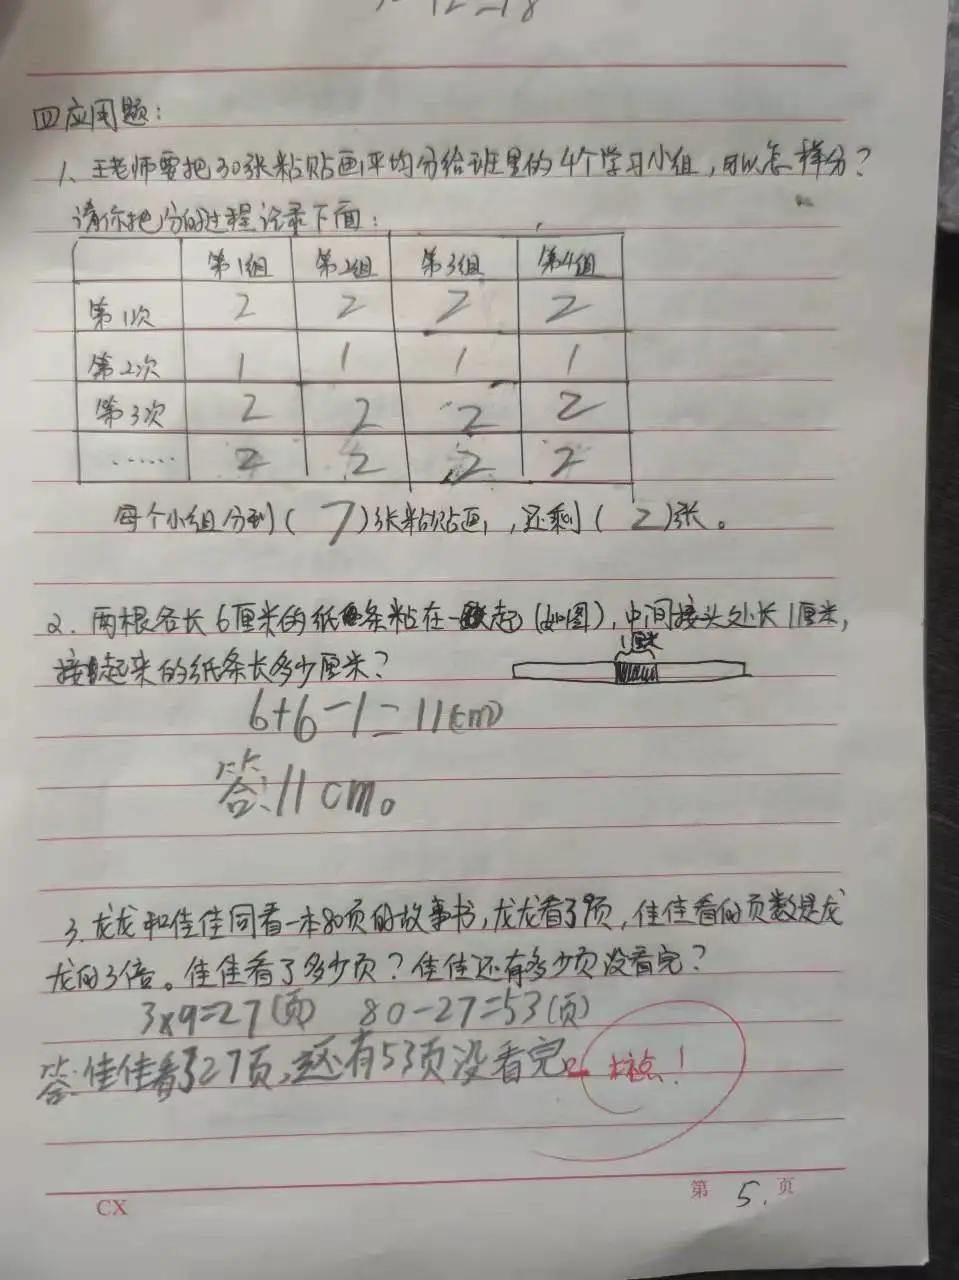 四应用题：
1、王老师要把30张粘贴画平均分给班里的4个学习小组，可以怎样分？
请你把分的过程记录下面：
第1组 第2组 第3组 第4组
第1次 2 2 2 2
第2次 1 1 1 1
第3次 2 2 2 2
…… 2 2 2 2
每个小组分到（7）张粘贴画，还剩（2）张。
2．两根各长6厘米的纸条粘在一起（如图），中间接头处长1厘米，
1厘米
接起来的纸条长多少厘米？
6+6-1=11(cm)
答：11cm。
3、龙龙和佳佳同看一本80页的故事书，龙龙看了9页，佳佳看的页数是龙
龙的3倍。佳佳看了多少页？佳佳还有多少页没看完？
3×9=27(页) 80-27=53(页)
答：佳佳看了27页，还有53页没看完。
标点！
CX
第5.页